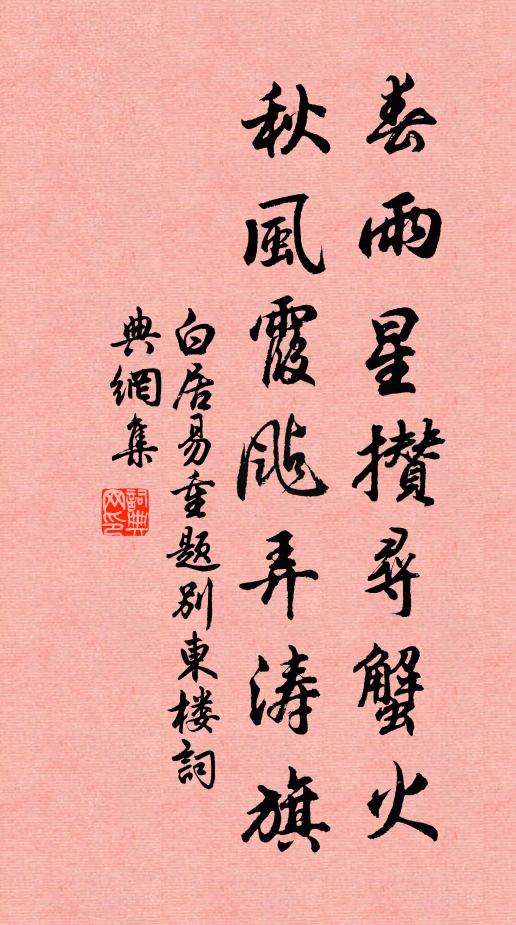 春雨星攢尋蟹火
秋風霞颭弄涛旗
白居易重题别東楼詞
典網集
詞典
网印